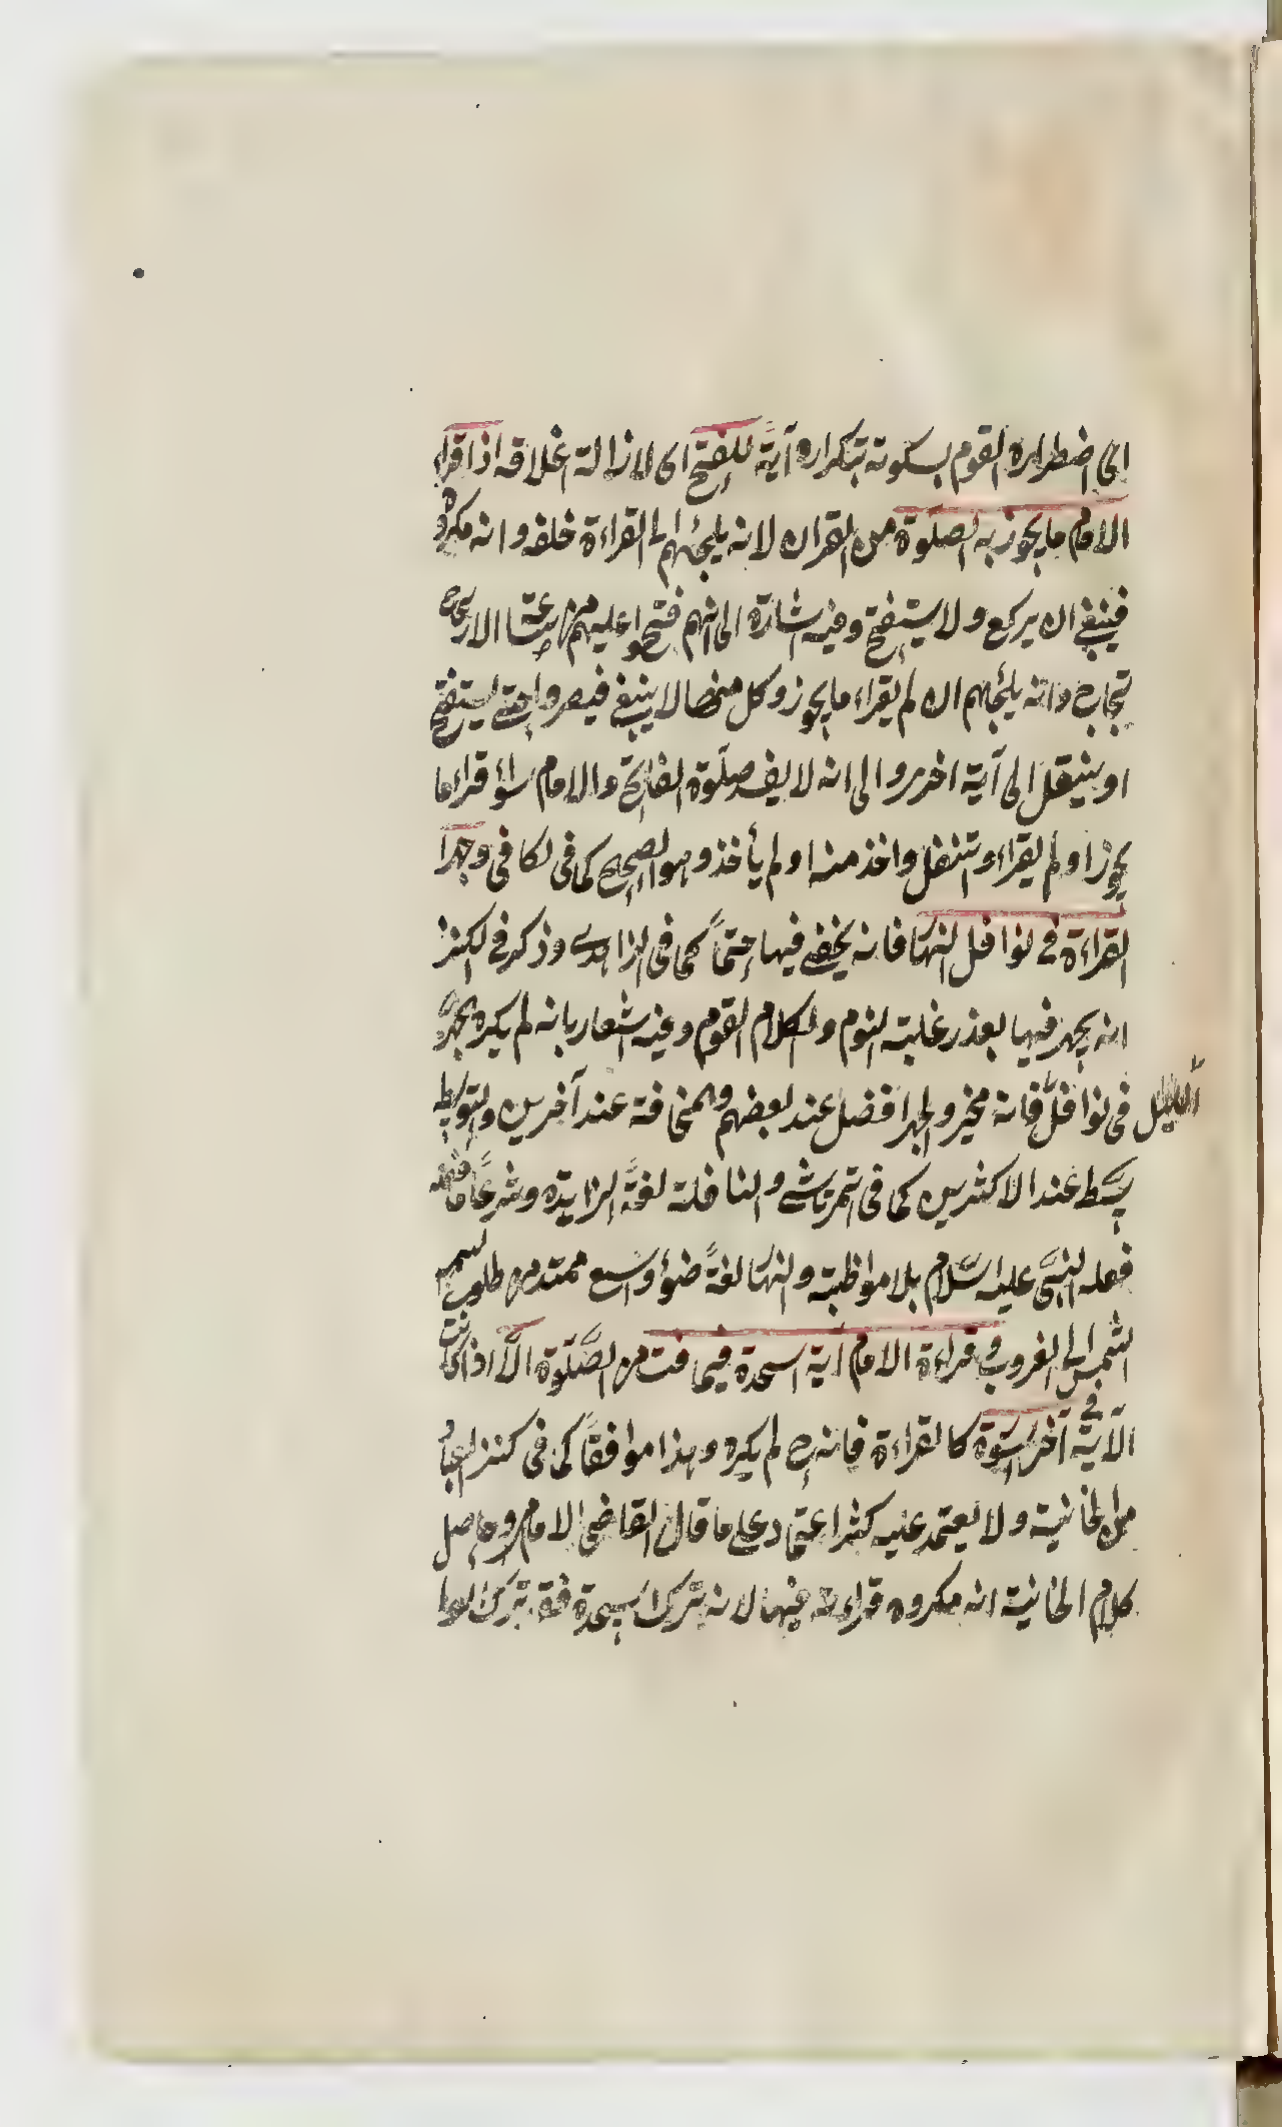 اى اضطراره القوم بسكوته بتكراره آيةً للفتح اى لازالة اغلاقه اذا قراء
الامام ما يجوز به الصلوة من القران لانه يلجئهم الى القراءة خلفه وانه مكروه
فينبغى ان يركع ولا يستفتح وفيه اشارة الى انهم فتحوا عليهم من ساعته الا ان
تجاب وانه يلجئهم ان لم يقراء ما يجوز وكل منهما لا ينبغى فيصبروا حتى يستفتح
او ينتقل الى آية اخرى والى انه لا يفسد صلوة الفاتح والامام سواء قراء ما
يجوز او لم يقراء وتنفل واخذ منه او لم يأخذ وهو الصحيح كما فى الكافى وجهر
القراءة فى نوافل النهار فانه يخفى فيها حتماً كما فى الزاهدى وذكر فى الكنز
انه يجهر فيها بعذر غلبته النوم والكلام القوم وفيه اشعار بانه لم يكره بجهر
الليل فى نوافل فانه مخير والجهر افضل عند بعضهم والمخافتة عند آخرين والتوسط
عند الاكثرين كما فى تمرتاشى والنافلة لغةً الزايدة وشرعاً ما
فعله النبىّ عليه السّلام بلا مواظبته والنهار لغةً ضوء واسع ممتد من طلوع
الشمس الى الغروب وقراءة الامام آية السجدة فيما خافت من الصّلوة الّا اذا كانت
الآية فى آخر السورة كالقراءة فانه ح لم يكره وهذا موافقاً كما فى كنز العباد
من الخانية ولا يعتمد عليه كثر اعتماد على ما قال القاضى الامام وحاصل
كلام الخانية انه مكروه قراءته فيها لانه بترك السجدة فقد ترك الواجب